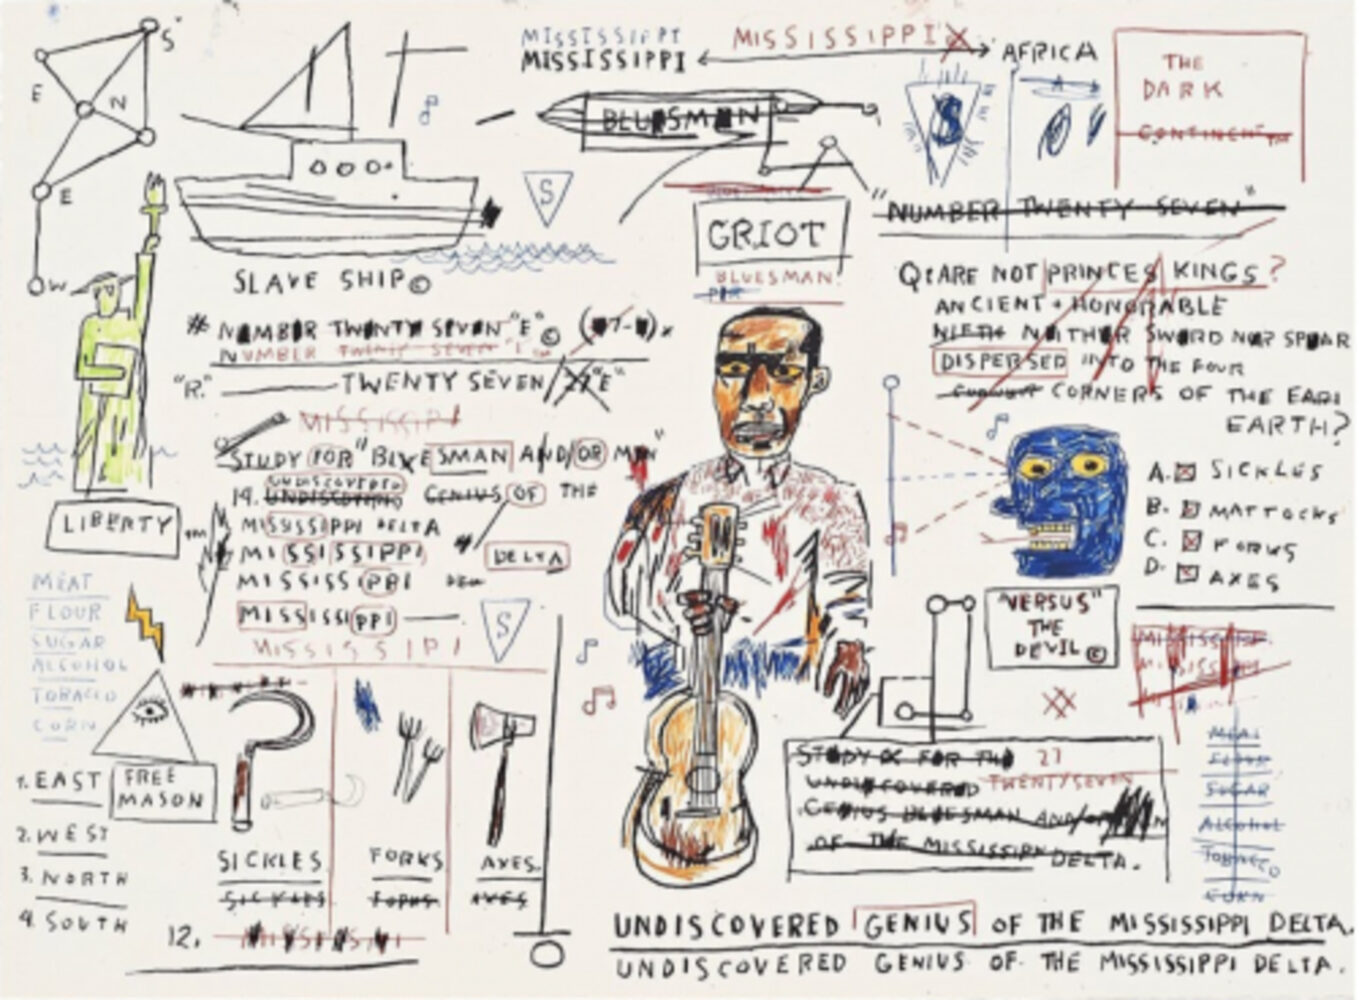 S
E
N
E
W
MISSISSIPPI
MISSISSIPPI
MISSISSIPPI
AFRICA
THE
DARK
BLUESMAN
S
$
A
"NUMBER TWENTY SEVEN"
GRIOT
BLUESMAN.
SLAVE SHIP©
# NUMBER TWENTY SEVEN "E"©
NUMBER TWENTY SEVEN "E"
"R." TWENTY SEVEN/27"E"
MISSISSIPPI
STUDY FOR "BLUESMAN AND/OR MAN"
UNDISCOVERED
14. UNDISCOVERED GENIUS OF THE
MISSISSIPPI DELTA
MISSISSIPPI
DELTA
MISSISSIPPI
MISSISSIPPI
S
MISSISSIPPI
LIBERTY TM
MEAT
FLOUR
SUGAR
ALCOHOL
TOBACCO
CORN
FREE
MASON
1. EAST
2. WEST
3. NORTH
4. SOUTH
SICKLES
FORKS
AXES.
SICKLES
FORKS
AXES
12.
Q: ARE NOT PRINCES KINGS?
ANCIENT + HONORABLE
NEITHER SWORD NOR SPEAR
DISPERSED INTO THE FOUR
CORNERS OF THE EARI
EARTH?
A. SICKLES
B. MATTOCKS
C. FORKS
D. AXES
"VERSUS"
THE
DEVIL©
STUDY FOR THE 27
UNDISCOVERED TWENTY SEVEN
GENIUS BLUESMAN AND/OR
OF THE MISSISSIPPI DELTA.
MEAT
FLOUR
SUGAR
ALCOHOL
TOBACCO
CORN
UNDISCOVERED GENIUS OF THE MISSISSIPPI DELTA.
UNDISCOVERED GENIUS OF THE MISSISSIPPI DELTA.